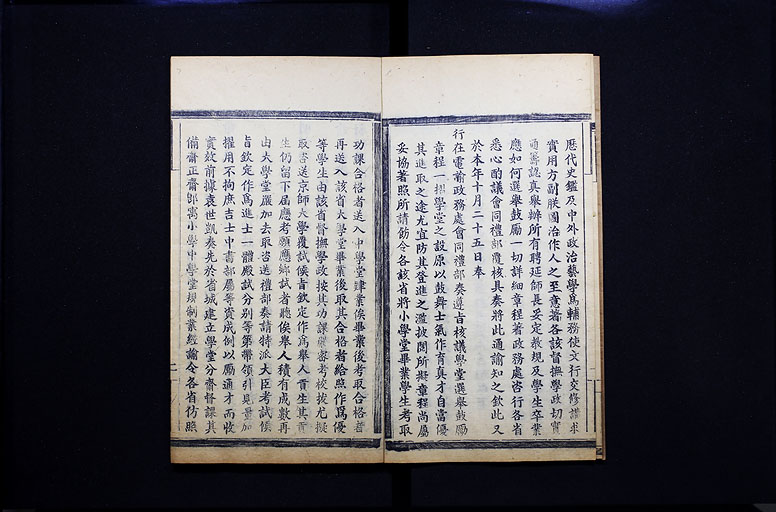 歷代史鑑及中外政治藝學爲輔務使文行交修講求
實用方副朕圖治作人之至意著各該督撫學政切實
通籌認真舉辦所有聘延師長妥定教規及學生卒業
應如何選舉鼓勵一切詳細章程著政務處咨行各省
悉心酌議會同禮部覆核具奏將此通諭知之欽此又
於本年十月二十五日奉
行在電諭政務處會同禮部奏遵旨核議學堂選舉鼓勵
章程一摺學堂之設原以鼓舞士氣作育真才自當優
其進取之途尤宜防其登進之濫披閱所擬章程尚屬
妥協著照所請飭令各該省將小學堂畢業學生考取
功課合格者送入中學堂肄業俟畢業後考取合格者
再送入該省大學堂畢業後取其合格者給照作爲優
等學生由該省督撫學政按其功課嚴密考校拔尤擬
取咨送京師大學覆試候旨欽定作爲舉人貢生其貢
生仍留下屆應考願應鄉試者聽俟舉人積有成數再
由大學堂嚴加去取咨送禮部奏請特派大臣考試候
旨欽定作爲進士一體殿試分別等第帶領引見量加
擢用不拘庶吉士中書部屬等資成例以勵通才而收
實效前據袁世凱奏先於省城建立學堂分齋督課其
備齋正齋即寓小學中學堂規制業經諭令各省仿照
二